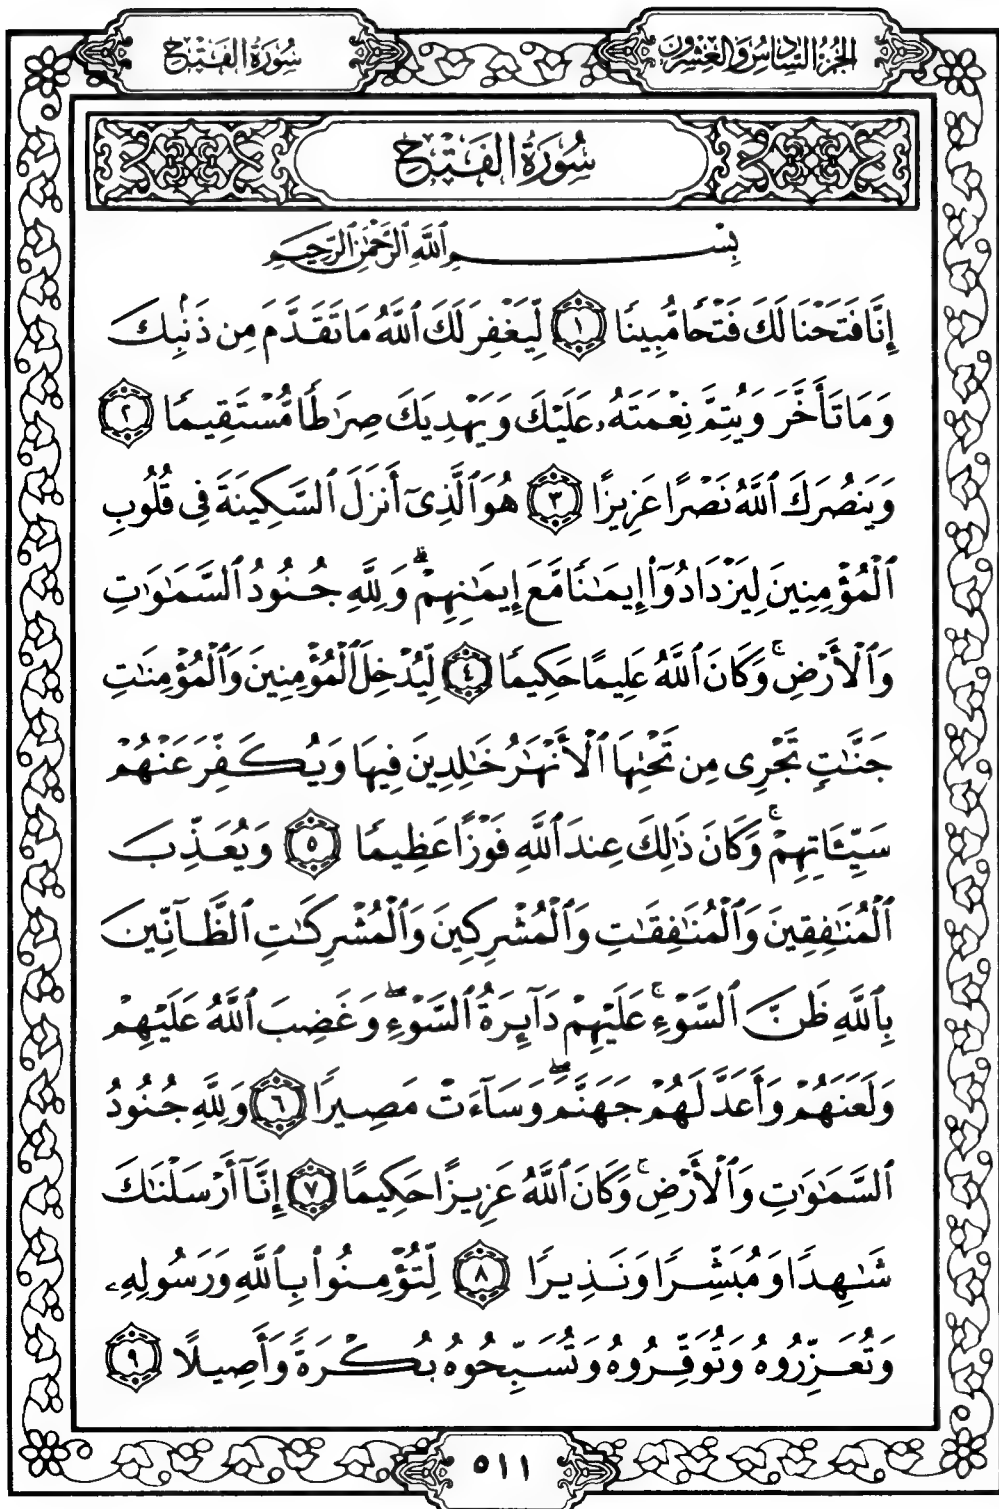 الجزء السادس والعشرون
سُورَةُ الفَتْح
سُورَةُ الفَتْح
بِسْمِ ٱللَّهِ ٱلرَّحْمَٰنِ ٱلرَّحِيمِ
إِنَّا فَتَحْنَا لَكَ فَتْحًا مُّبِينًا ١ لِّيَغْفِرَ لَكَ ٱللَّهُ مَا تَقَدَّمَ مِن ذَنۢبِكَ
وَمَا تَأَخَّرَ وَيُتِمَّ نِعْمَتَهُۥ عَلَيْكَ وَيَهْدِيَكَ صِرَٰطًا مُّسْتَقِيمًا ٢
وَيَنصُرَكَ ٱللَّهُ نَصْرًا عَزِيزًا ٣ هُوَ ٱلَّذِىٓ أَنزَلَ ٱلسَّكِينَةَ فِى قُلُوبِ
ٱلْمُؤْمِنِينَ لِيَزْدَادُوٓا۟ إِيمَٰنًا مَّعَ إِيمَٰنِهِمْ ۗ وَلِلَّهِ جُنُودُ ٱلسَّمَٰوَٰتِ
وَٱلْأَرْضِ ۚ وَكَانَ ٱللَّهُ عَلِيمًا حَكِيمًا ٤ لِّيُدْخِلَ ٱلْمُؤْمِنِينَ وَٱلْمُؤْمِنَٰتِ
جَنَّٰتٍ تَجْرِى مِن تَحْتِهَا ٱلْأَنْهَٰرُ خَٰلِدِينَ فِيهَا وَيُكَفِّرَ عَنْهُمْ
سَيِّـَٔاتِهِمْ ۚ وَكَانَ ذَٰلِكَ عِندَ ٱللَّهِ فَوْزًا عَظِيمًا ٥ وَيُعَذِّبَ
ٱلْمُنَٰفِقِينَ وَٱلْمُنَٰفِقَٰتِ وَٱلْمُشْرِكِينَ وَٱلْمُشْرِكَٰتِ ٱلظَّآنِّينَ
بِٱللَّهِ ظَنَّ ٱلسَّوْءِ ۚ عَلَيْهِمْ دَآئِرَةُ ٱلسَّوْءِ ۖ وَغَضِبَ ٱللَّهُ عَلَيْهِمْ
وَلَعَنَهُمْ وَأَعَدَّ لَهُمْ جَهَنَّمَ ۖ وَسَآءَتْ مَصِيرًا ٦ وَلِلَّهِ جُنُودُ
ٱلسَّمَٰوَٰتِ وَٱلْأَرْضِ ۚ وَكَانَ ٱللَّهُ عَزِيزًا حَكِيمًا ٧ إِنَّآ أَرْسَلْنَٰكَ
شَٰهِدًا وَمُبَشِّرًا وَنَذِيرًا ٨ لِّتُؤْمِنُوا۟ بِٱللَّهِ وَرَسُولِهِۦ
وَتُعَزِّرُوهُ وَتُوَقِّرُوهُ وَتُسَبِّحُوهُ بُكْرَةً وَأَصِيلًا ٩
٥١١